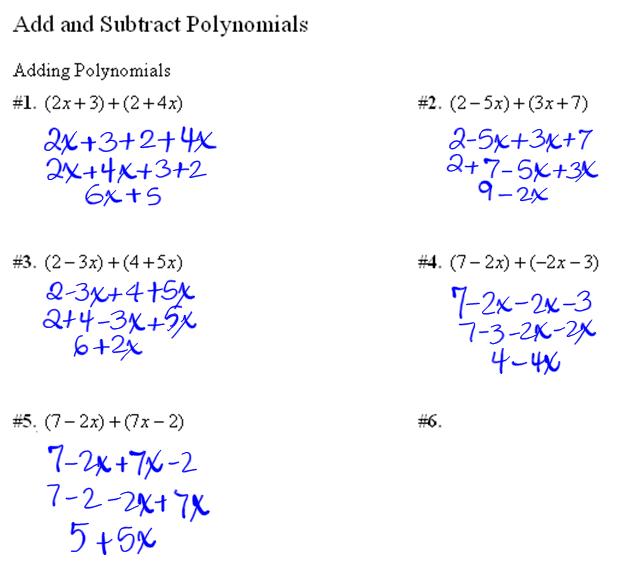 Add and Subtract Polynomials
Adding Polynomials
#1. (2x+3)+(2+4x)
2x+3+2+4x
2x+4x+3+2
6x+5
#2. (2–5x)+(3x+7)
2-5x+3x+7
2+7-5x+3x
9-2x
#3. (2–3x)+(4+5x)
2-3x+4+5x
2+4-3x+5x
6+2x
#4. (7–2x)+(–2x–3)
7-2x-2x-3
7-3-2x-2x
4-4x
#5. (7–2x)+(7x–2)
7-2x+7x-2
7-2-2x+7x
5+5x
#6.